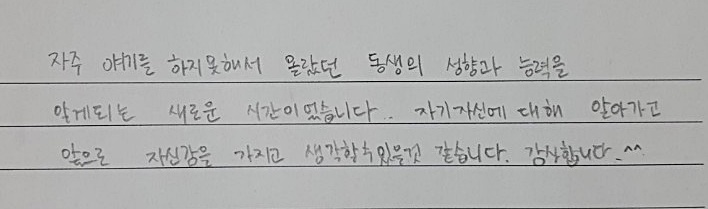 자주 얘기를 하지못해서 몰랐던 동생의 성향과 능력을
알게되는 새로운 시간이었습니다.. 자기자신에 대해 알아가고
앞으로 자신감을 가지고 생각할수있을것 같습니다. 감사합니다.^^